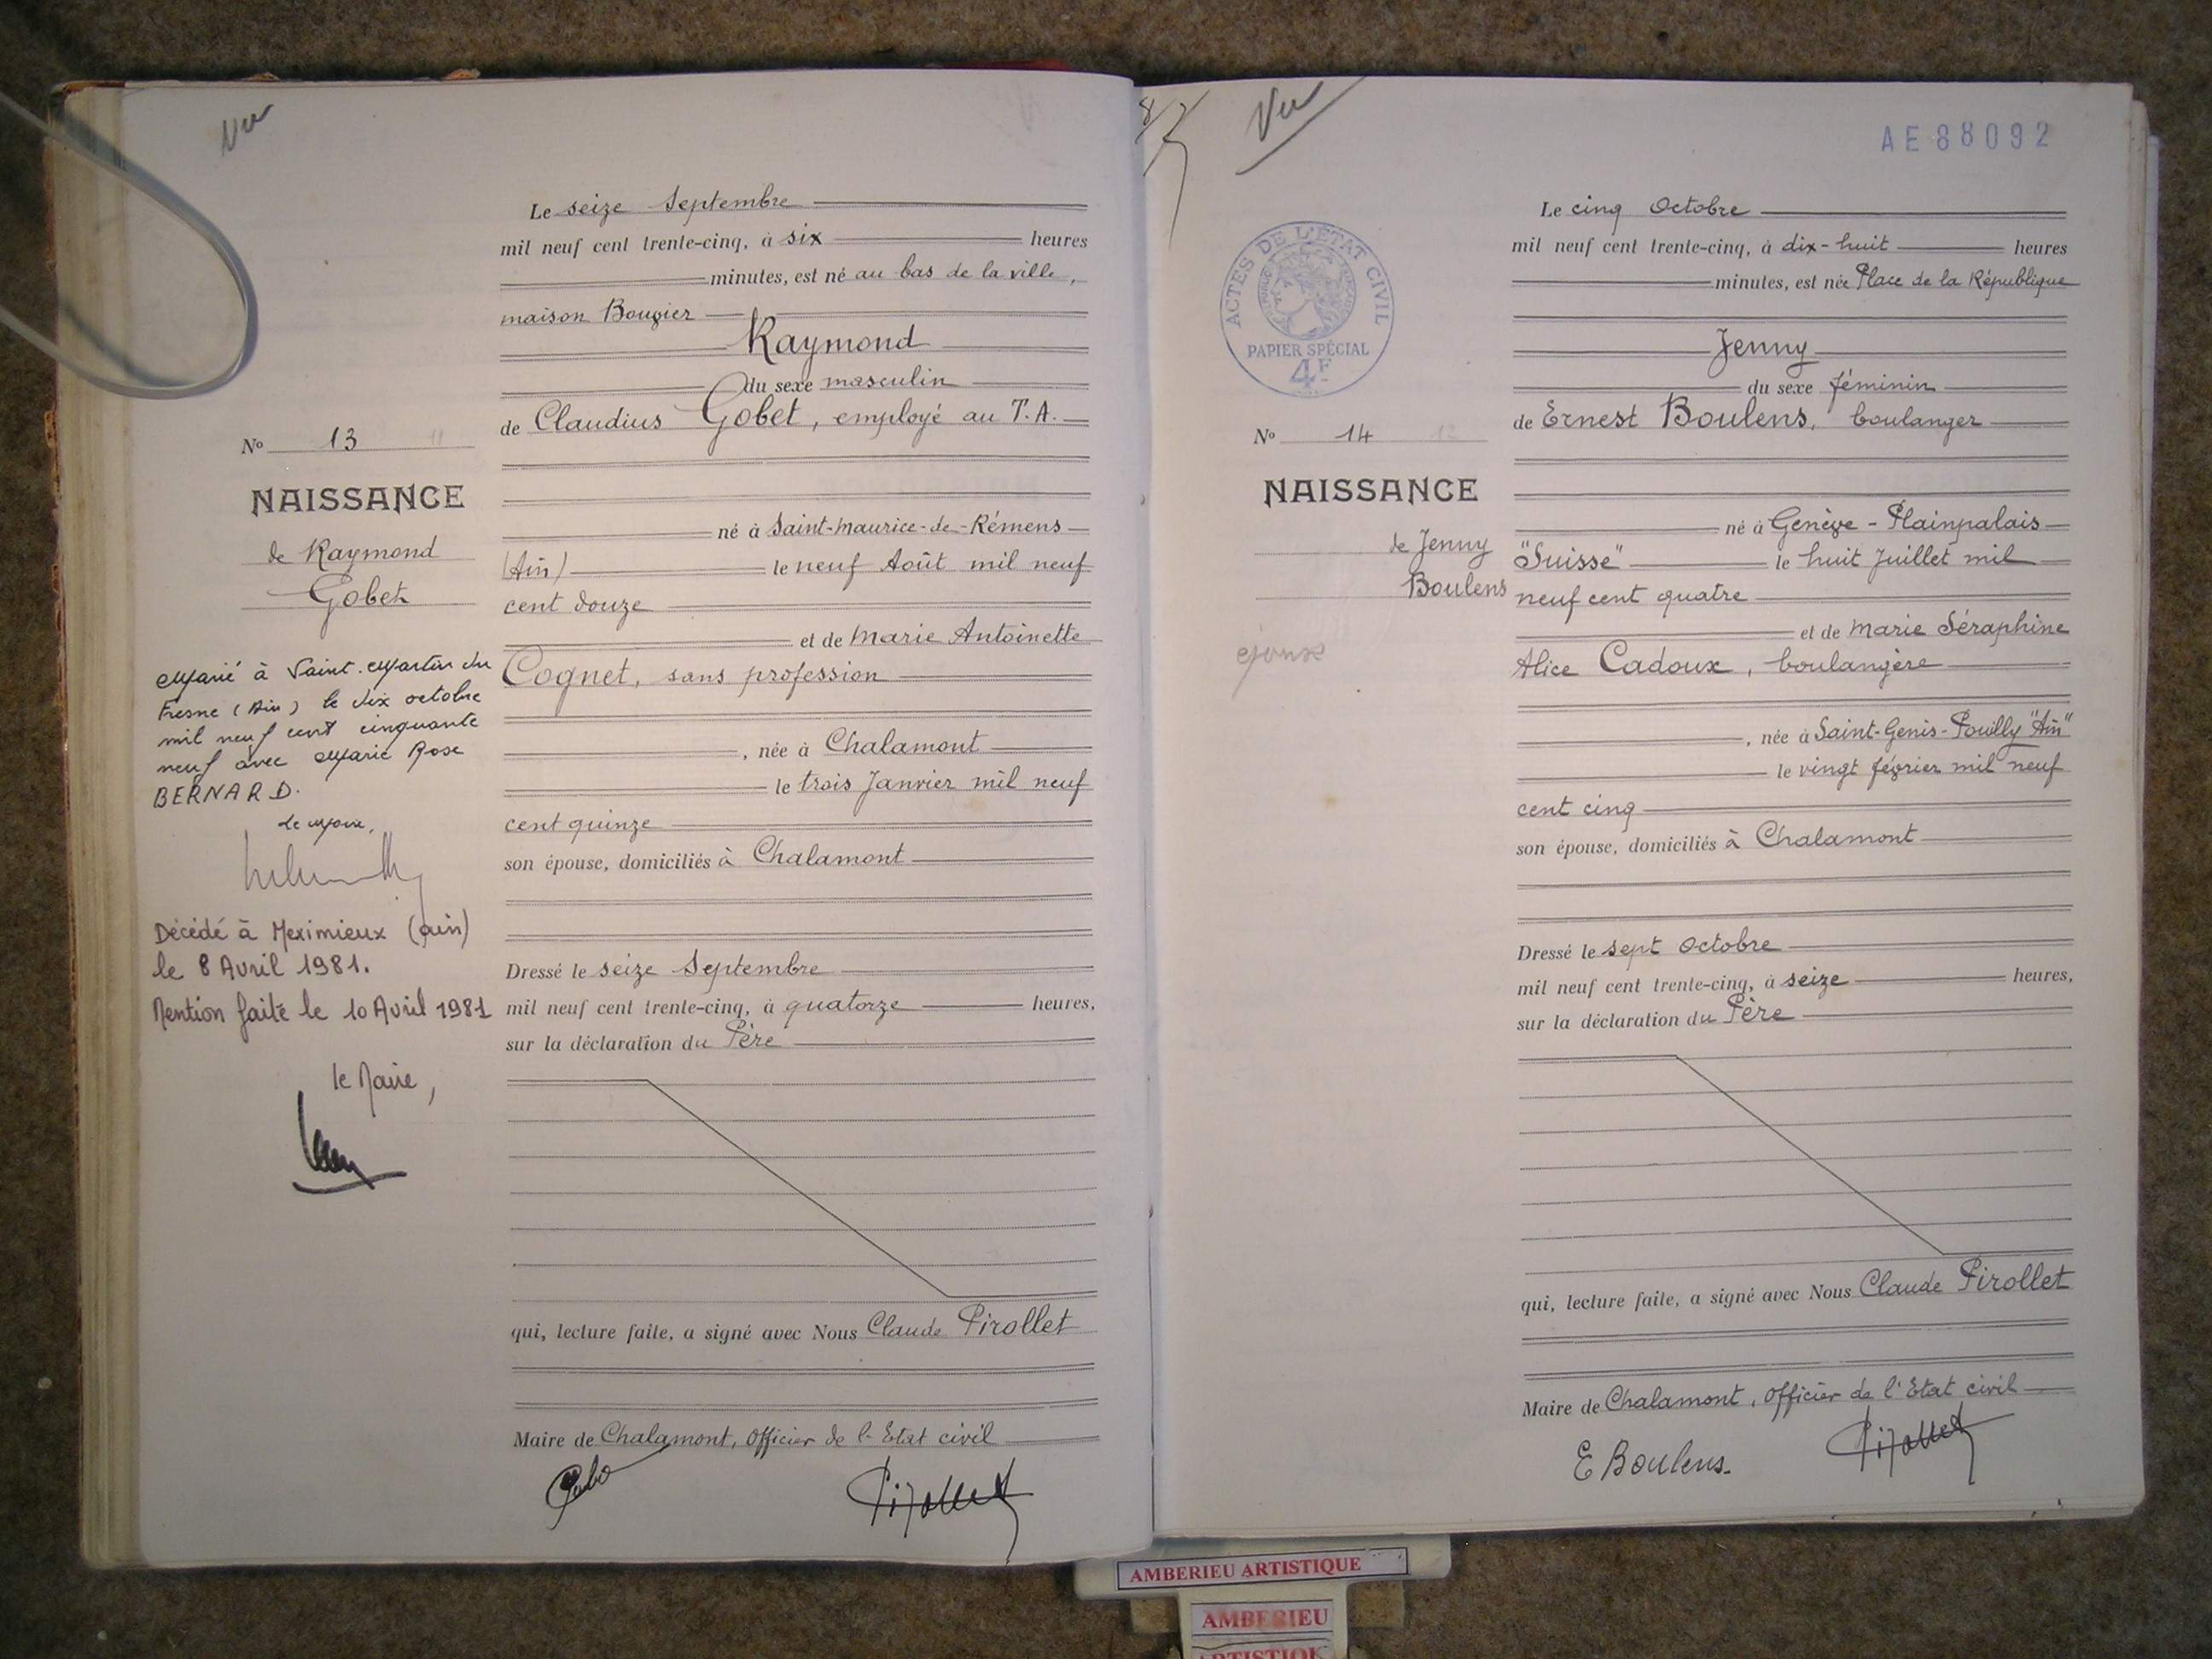 Vu
Le seize Septembre
mil neuf cent trente-cinq, à six heures
minutes, est né au bas de la ville,
maison Bougier
Raymond
du sexe masculin
de Claudius Gobet, employé au T.A.
No 13
NAISSANCE
de Raymond
Gobet
né à Saint-Maurice-de-Rémens
(Ain) le neuf Août mil neuf
cent douze
et de Marie Antoinette
Cognet, sans profession
, née à Chalamont
le trois Janvier mil neuf
cent quinze
son épouse, domiciliés à Chalamont
Marié à Saint-Martin du
Fresne (Ain) le dix octobre
mil neuf cent cinquante
neuf avec Marie Rose
BERNARD.
Le Maire,
Décédé à Meximieux (ain)
le 8 Avril 1981.
Mention faite le 10 Avril 1981
le Maire,
Dressé le seize Septembre
mil neuf cent trente-cinq, à quatorze heures,
sur la déclaration du Père
qui, lecture faite, a signé avec Nous Claude Pirollet
Maire de Chalamont, Officier de l'Etat civil
Pirollet
Vu
AE88092
ACTES DE L'ÉTAT CIVIL
PAPIER SPÉCIAL
4F
Le cinq Octobre
mil neuf cent trente-cinq, à dix-huit heures
minutes, est née Place de la République
Jenny
du sexe féminin
de Ernest Boulens, boulanger
No 14
NAISSANCE
de Jenny
Boulens
né à Genève-Plainpalais
"Suisse" le huit Juillet mil
neuf cent quatre
et de Marie Séraphine
Alice Cadoux, boulangère
, née à Saint-Genis-Pouilly "Ain"
le vingt février mil neuf
cent cinq
son épouse, domiciliés à Chalamont
Dressé le sept Octobre
mil neuf cent trente-cinq, à seize heures,
sur la déclaration du Père
qui, lecture faite, a signé avec Nous Claude Pirollet
Maire de Chalamont, Officier de l'Etat civil
E Boulens.
Pirollet
AMBERIEU ARTISTIQUE
AMBERIEU
ARTISTIQ